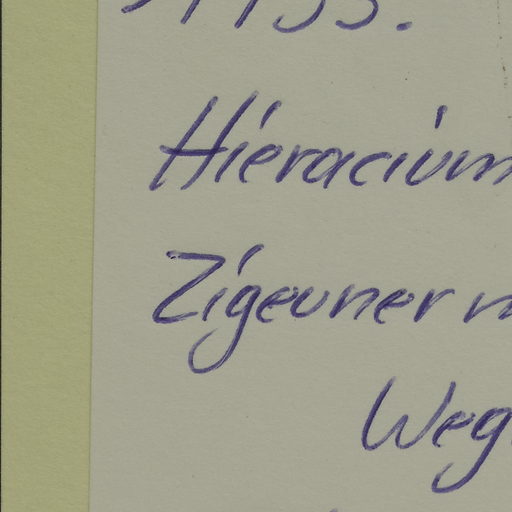 Hieracium
Zigeuner
Weg